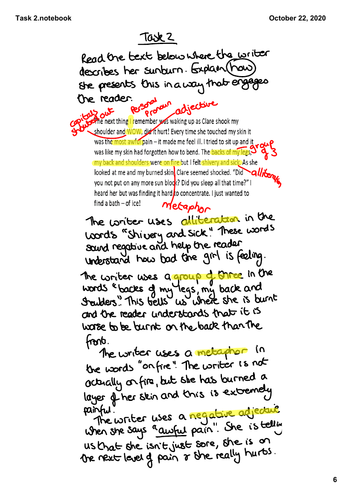 Task 2.notebook
October 22, 2020
Task 2
Read the text below where the writer
describes her sunburn. Explain how
she presents this in a way that engages
the reader.
capitals
shouted out
Personal
Pronoun
adjective
The next thing I remember was waking up as Clare shook my
shoulder and WOW, did it hurt! Every time she touched my skin it
was the most awful pain – it made me feel ill. I tried to sit up and it
was like my skin had forgotten how to bend. The backs of my legs,
group
of 3
my back and shoulders were on fire but I felt shivery and sick. As she
looked at me and my burned skin, Clare seemed shocked. "Did
alliteration
you not put on any more sun block? Did you sleep all that time?" I
heard her but was finding it hard to concentrate. I just wanted to
find a bath – of ice!
metaphor
The writer uses alliteration in the
words "Shivery and sick." These words
sound negative and help the reader
understand how bad the girl is feeling.
The writer uses a group of three in the
words "backs of my legs, my back and
shoulders." This tells us where she is burnt
and the reader understands that it is
worse to be burnt on the back than the
front.
The writer uses a metaphor in
the words "on fire". The writer is not
actually on fire, but she has burned a
layer of her skin and this is extremely
painful.
The writer uses a negative adjective
when she says "awful pain". She is telling
us that she isn't just sore, she is on
the next level of pain & she really hurts.
6